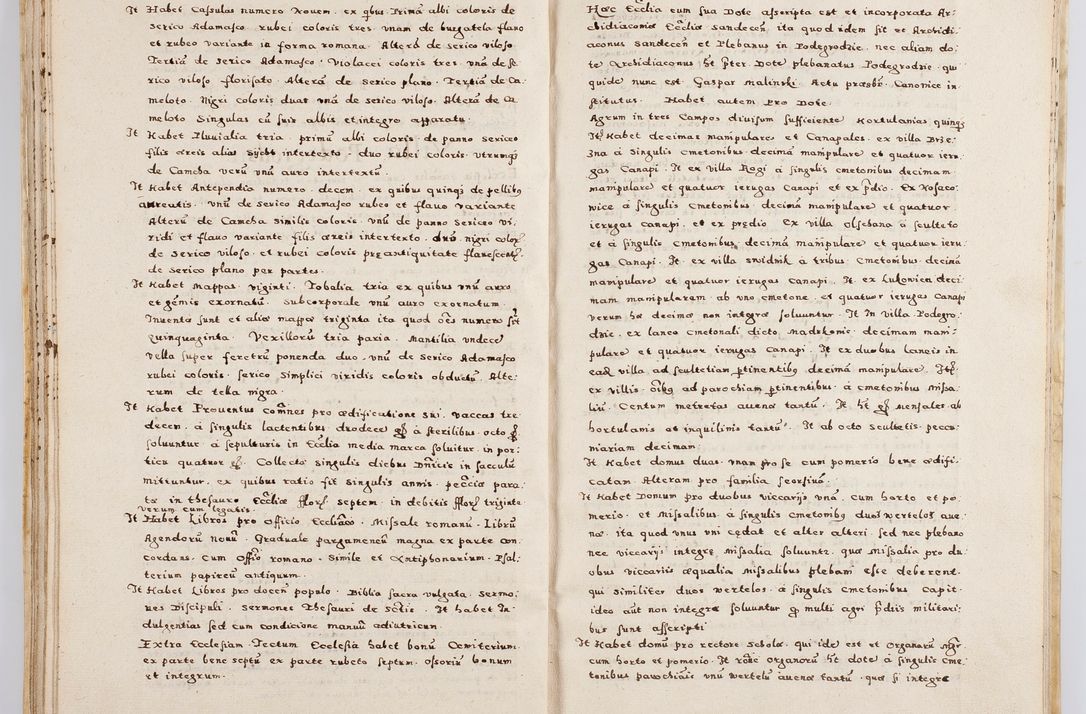 It Habet Cassulas numero Nouem. ex qbus Prima albi coloris de
serico Adamasco. rubei coloris tres. vnam de burgatela flauo
et rubeo variante in forma romana. Alterã de serico viloso.
Tertiã de serico Adamasco. Violacei coloris tres. vnã de se:
rico viloso florisato. Alterã de serico plano. Tertiã de Ca:
meloto. Nigri coloris duas vnã de serico viloso. Alterã de Ca
meloto Singulas cũ suis albis et integro apparatu.
It Habet Pluuialia tria. primũ albi coloris. de panno sericeo
filis æreis alias Szycht intertexto. duo rubei coloris. vtrumq
de Camcha verũ vnũ auro intertextũ.
It Habet Antependia numero decem. ex quibus quinq de pellibq
aureatis. vnũ de serico Adamasco rubeo et flauo variante
Alterũ de Camcha similis coloris. vnũ de panno Sericeo vi:
ridi et flauo variante filis æreis intertexto. duo nigri color
de serico viloso. et rubei coloris præ antiquitate flauescent
de serico plano per partes.
It Habet mappas viginti. Tobalia tria ex quibus vnũ auro
et gẽmis exornatũ. Subcorporale vnũ auro exornatum.
Inuenta sunt et aliæ mappæ triginta ita quod oẽs numero sĩt
quinquaginta. Vexillorũ tria paria. Mantilia vndecẽ
Vella super feretrũ ponenda duo. vnũ de serico Adamasco
rubei coloris. serico simplici viridis coloris obductũ. Alte:
rum de tella nigra.
It Habet Prouentus comẽnes pro ædificatione sui. vaccas tre
decem. à singulis lactentibus duodece gr à sterilibus. octo gr
soluuntur à sepulturis in Ecclia media marca soluitur. in por:
ticu quatuor gr. Collecta singulis diebus Dñicis in sacculũ
mittuntur. ex quibus ratio fit singulis annis. peccia para
ta in thesauro Eccliæ fflor septem. in debitis fflor triginta
verum cum legatis.
It Habet Libros pro officio Ecclico. Missale romanũ. Librũ
Agendorũ nouũ. Graduale pargameneũ magna ex parte con
cordans. Cum offo romano. Simile et Antiphonarium. Psal:
terium papireũ antiquum.
It Habet Libros pro docen populo. Biblia sacra vulgata. Sermo:
nes Discipuli. Sermones Thesauri de Sctis. It habet In
dulgentias sed cum condicione manuũ adiutricum.
Extra Ecclesiam. Tectum Ecclesia habet bonũ Cœmiterium.
ex parte bene septũ ex parte rubeto septum. Ossoriũ bonum
et integrum.
Hæc Ecclia cum sua Dote asscripta est et incorporata Ar:
chidiaconiæ Eccliæ Sandecen. ita quod idem sit et Archidi:
aconus Sandecen et Plebanus in Podegrodzie. nec aliam do:
te Archidiaconus ht Pter. Dote plebanatus Podegrodzie. qui
quide nunc est Gaspar Malinski. Actu præsbr. Canonice in:
stitutus. Habet autem Pro Dote.
Agrum in tres Campos diuisum sufficiente Hortulanias quinq
It Habet decimas manipulare et Canapales. ex villa Brze:
zna à Singulis Cmetonibus decimã manipulare et quatuor ieru:
gas Canapi. It ex villa Rogi à singulis cmetonibus decimam
manipulare et quatuor ierugas Canapi et ex pdio. Ex Nosaco:
wice à singulis Cmetonibus decimã manipulare et quatuor
ierugas canapi. et ex predio Ex villa Olschana à sculteto
et à singulis cmetonibus decimã manipulare et quatuor ieru:
gas Canapi. It ex villa Swidnik à tribus Cmetonibus decimã
manipulare et quatuor ierugas canapi. It ex Lukowien deci:
mam manipularem ab vno cmetone. et quatuor ierugas Canapi
verum hæ decimæ non integræ soluuntur. It In villa Podegro:
dzie. ex laneo cmetonali dicto Madzkonie decimam mani:
pulare et quatuor ierugas Canapi. It ex duobus laneis in
ead villa ad scultetiam ptinentibq decimã manipulare. It
ex villis oĩbq ad parochiam ptinentibus à cmetonibus missa:
liũ. Centum metretas auenæ tantũ. It ht gr mensales ab
hortulanis et inquilinis tantũ. It ab octo scultetis pecu:
niariam decimam.
It Habet domus duas. vnam pro se cum pomerio bene ædifi:
catam. Alteram pro familia seorsiuã.
It Habet Domum pro duobus viccarijs vnã. cum horto et po:
merio. et missalibus à singulis Cmetonibq duos wertelos aue:
næ. ita quod vnus vni cędat et alter alteri. sed nec plebano
nec viccarijs integre missalia soluunt. quæ missalia pro du
obus viccariis æqualia missalibus plebani esse deberent.
qui similiter duos wertelos. à singulis Cmetonibus Capit.
ideo aũt non integræ soluuntur q multi agri pdiis militari:
bus sunt asscripti
It Habet domũ pro rectore scholæ. qui ide est et Organarũ Mgr
cum horto et pomerio. It rõne organorũ ht dote à singulis Cme
tonibus parochiæ vnũ wertelũ auenæ tantũ. quæ si integre